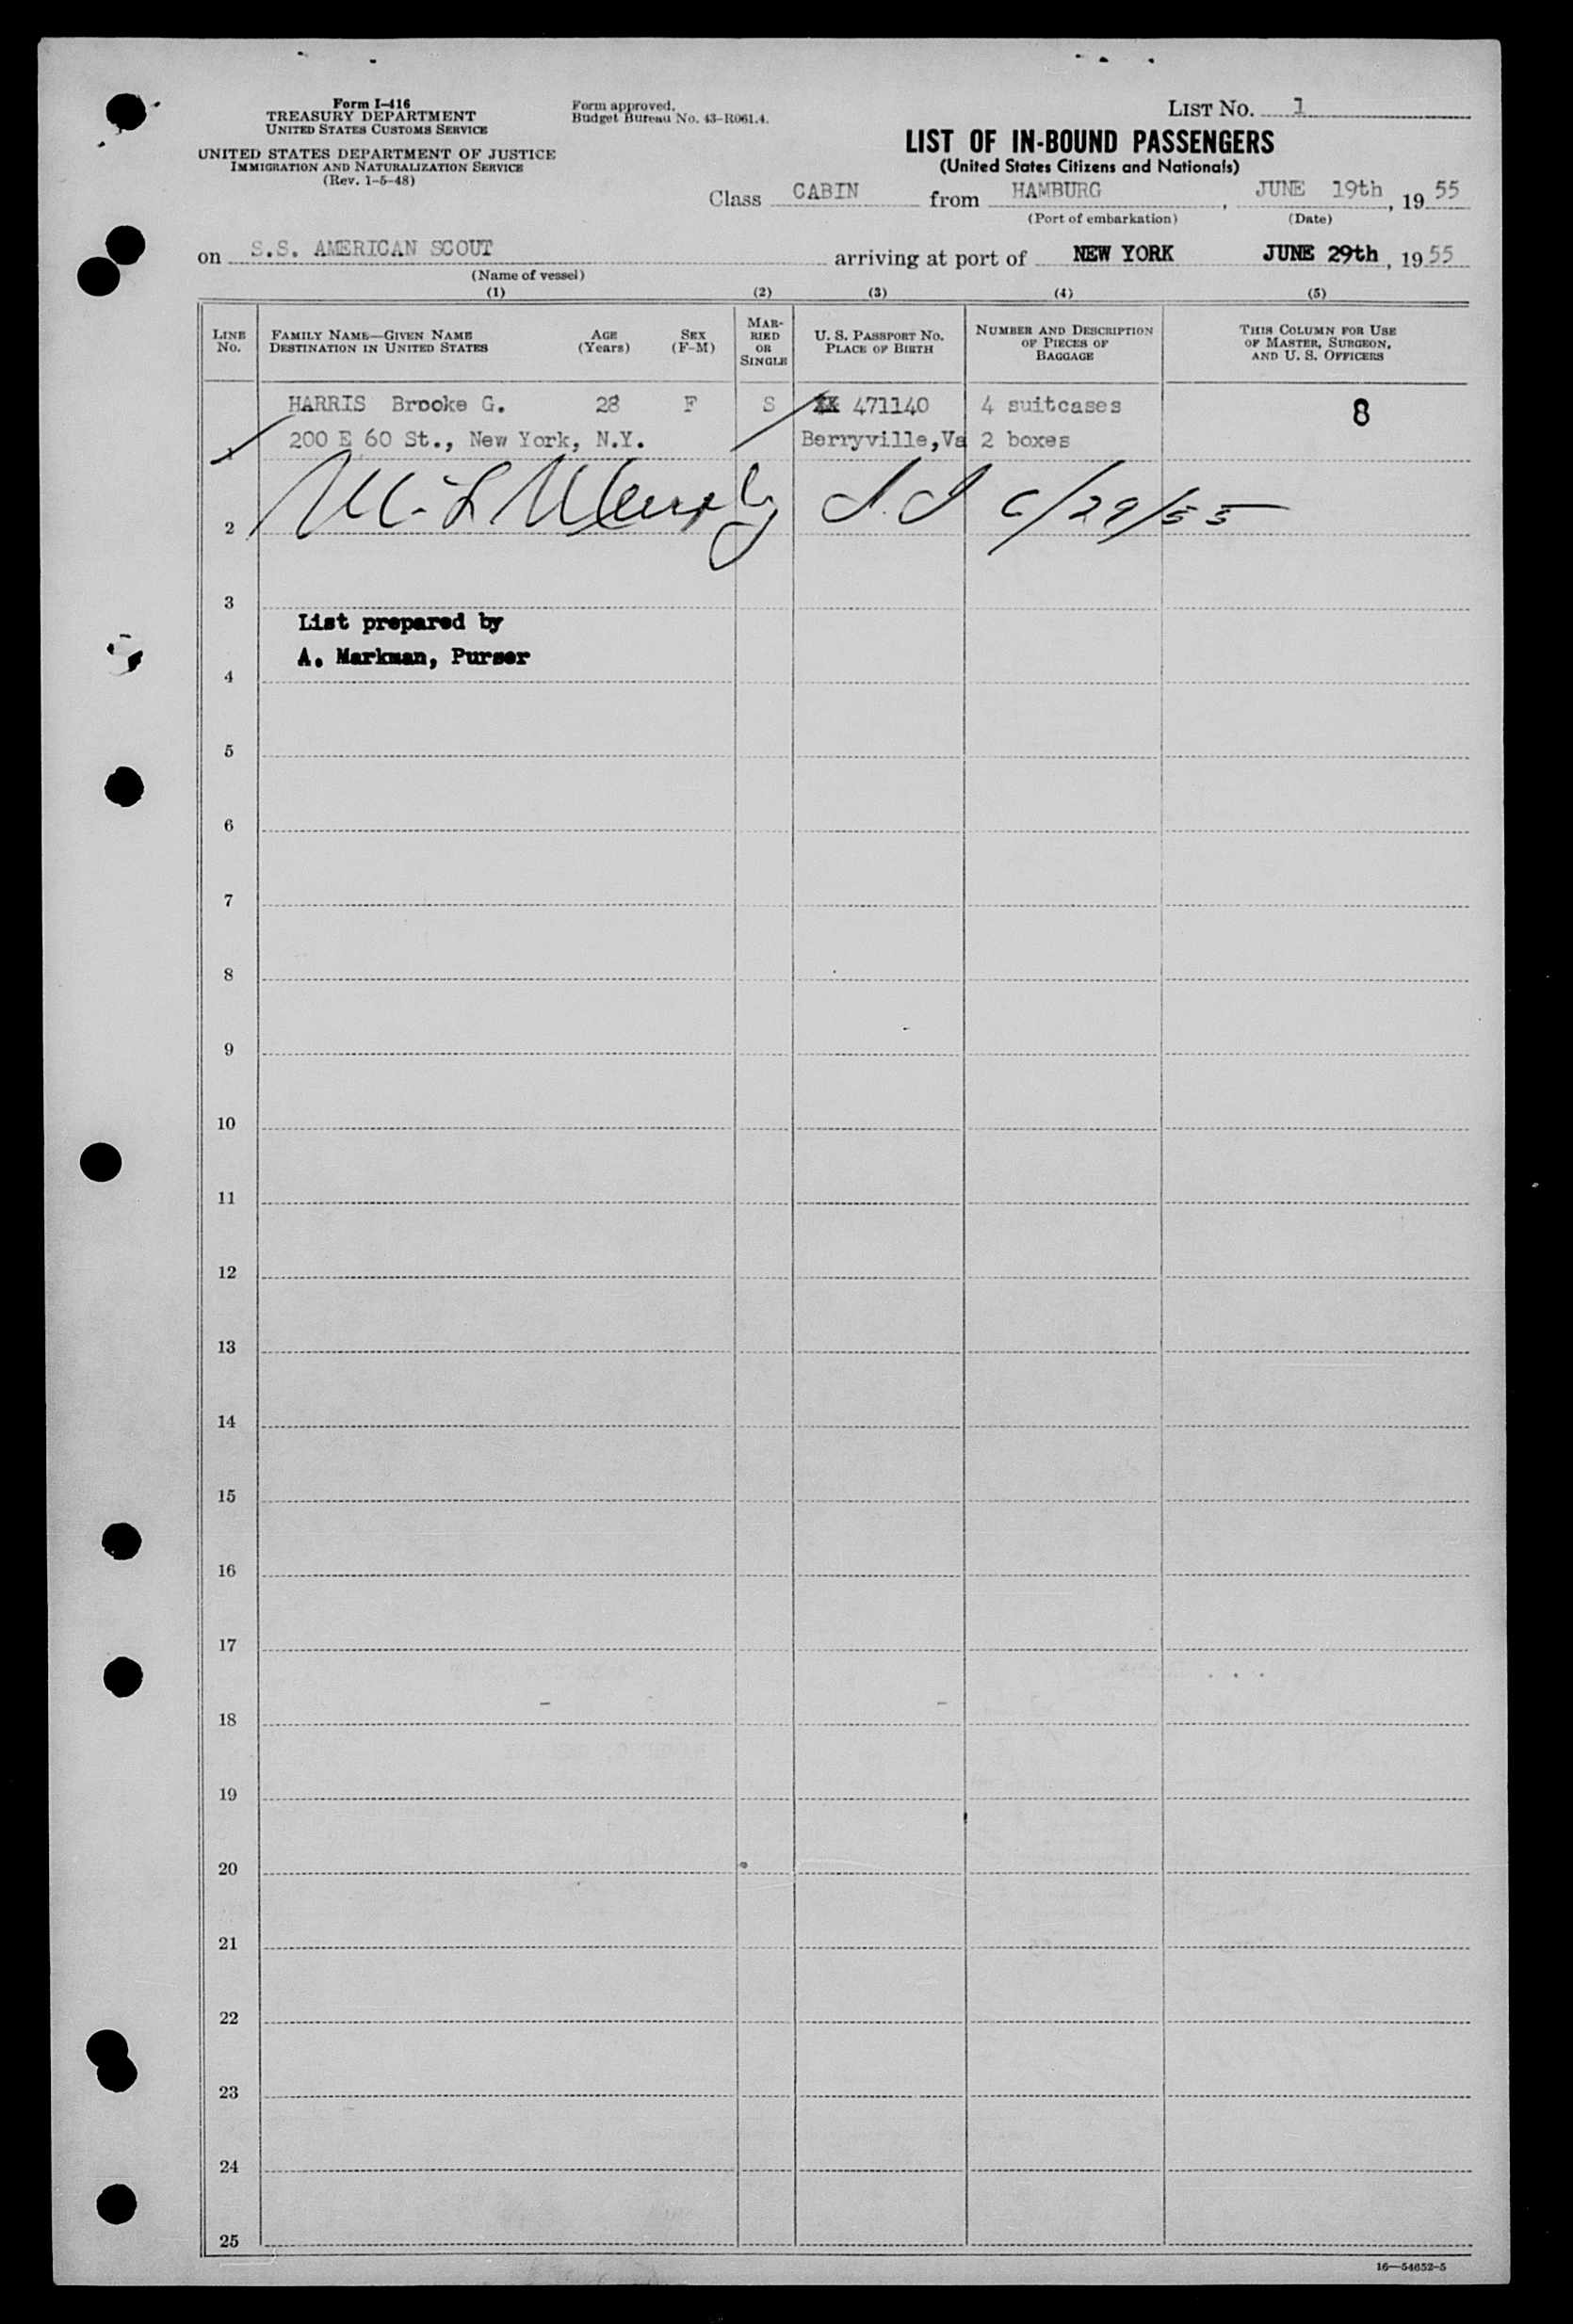 Form I-416
TREASURY DEPARTMENT
UNITED STATES CUSTOMS SERVICE
UNITED STATES DEPARTMENT OF JUSTICE
IMMIGRATION AND NATURALIZATION SERVICE
(Rev. 1-5-48)
Form approved.
Budget Bureau No. 43-R061.4.
LIST No. 1
LIST OF IN-BOUND PASSENGERS
(United States Citizens and Nationals)
Class CABIN from HAMBURG, JUNE 19th, 1955
(Port of embarkation) (Date)
on S.S. AMERICAN SCOUT arriving at port of NEW YORK JUNE 29th, 1955
(Name of vessel)
(1) (2) (3) (4) (5)
LINE No.
FAMILY NAME—GIVEN NAME
DESTINATION IN UNITED STATES
AGE
(Years)
SEX
(F-M)
MARRIED OR SINGLE
U. S. PASSPORT NO.
PLACE OF BIRTH
NUMBER AND DESCRIPTION
OF PIECES OF
BAGGAGE
THIS COLUMN FOR USE
OF MASTER, SURGEON,
AND U. S. OFFICERS
HARRIS Brooke G. 28 F S XX 471140 4 suitcases 8
1 200 E 60 St., New York, N.Y. Berryville,Va 2 boxes
2 6/29/55
3
List prepared by
A. Markman, Purser
4
5
6
7
8
9
10
11
12
13
14
15
16
17
18
19
20
21
22
23
24
25
16—54652-5